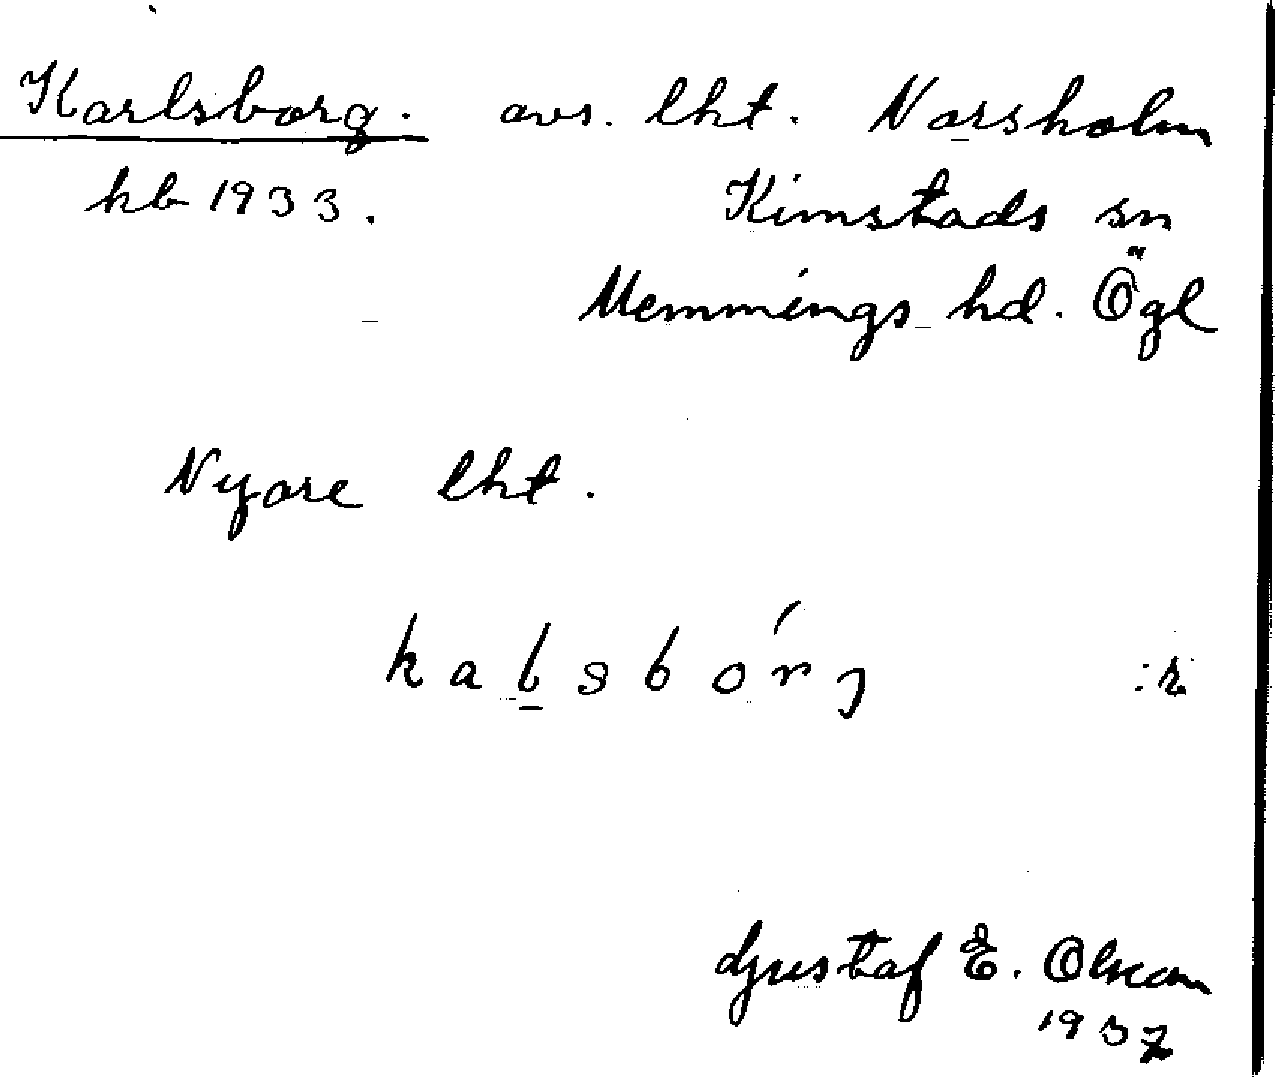 Karlsborg. avs. lht. Norsholm
kb 1933. Kimstads sn
Memmings hd. Ögl
Nyare lht.
kalsbórg :r
Gustaf E. Olsson
1937